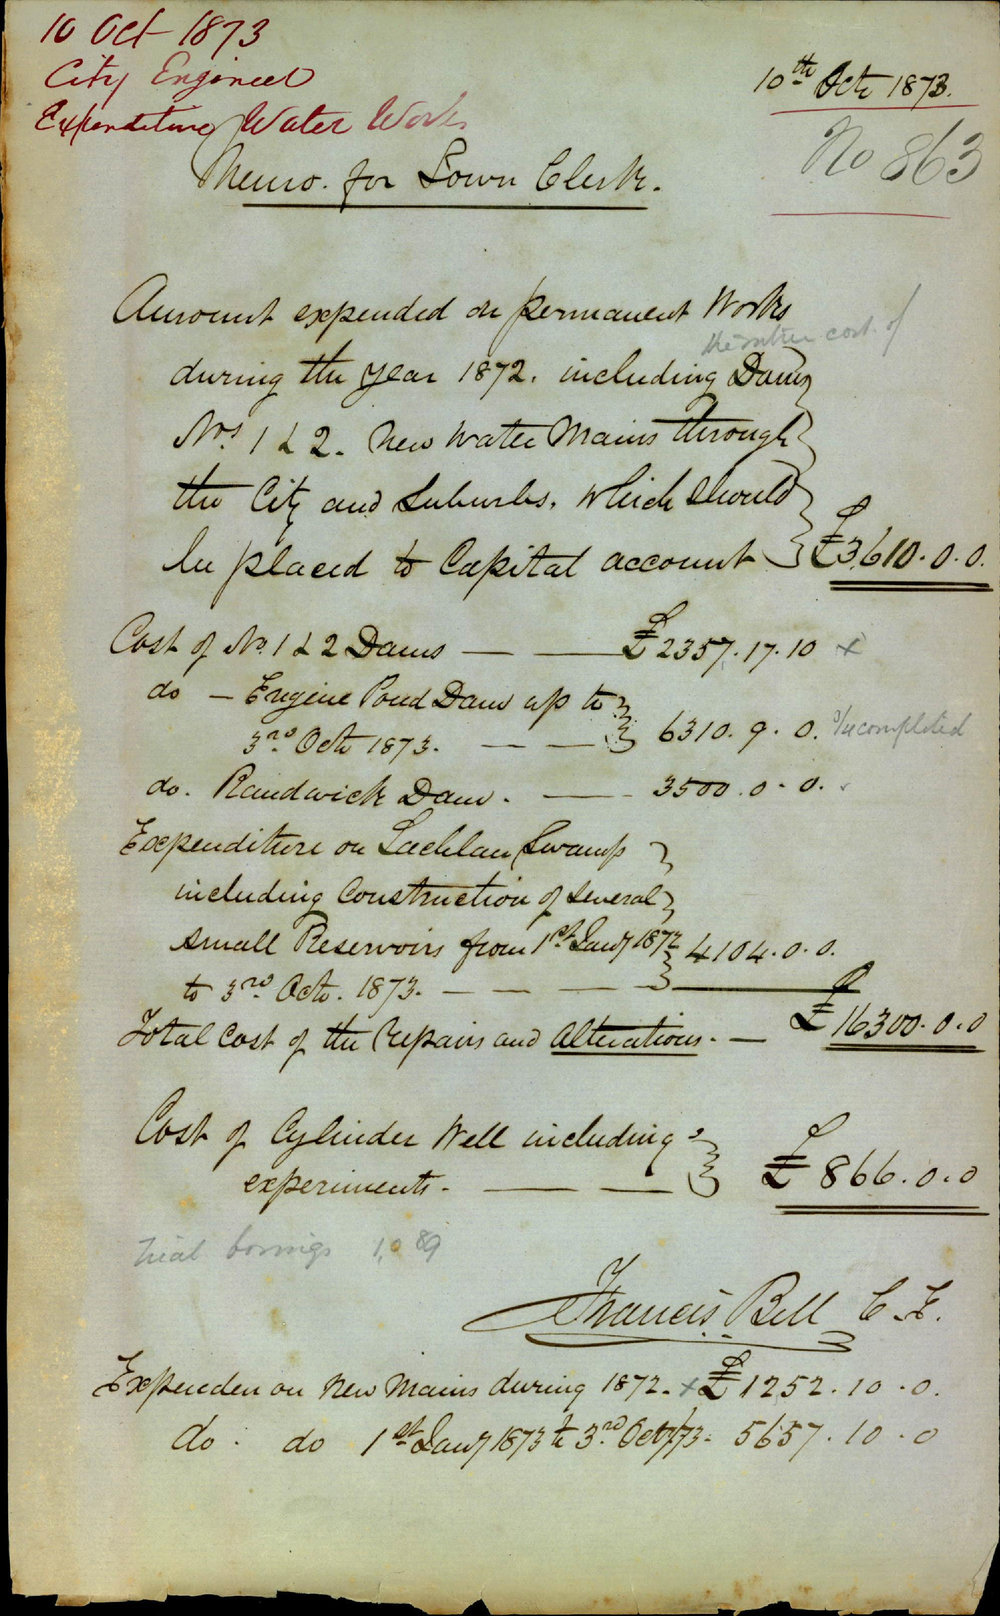 10 Oct 1873
City Engineer
Expenditure Water Works
10th Octr 1873.
No 863
Memo. for Town Clerk.
Amount expended on permanent Works
the entire cost of
during the year 1872. including Dams
Nos 1 & 2. New Water Mains through
the City and Suburbs. which should
be placed to Capital account £3,610.0.0.
Cost of No. 1 & 2 Dams — — £2357.17.10 x
do — Engine Pond Dam up to
3rd Octr 1873. — — 6310.9.0. Uncompleted
do. Randwick Dam. — - 3500.0.0.
Expenditure on Lachlan Swamp
including Construction of several
small Reservoirs from 1st Jany 1872 4104.0.0.
to 3rd Octr. 1873. — — — —
Total Cost of the Repairs and Alterations. — £16300.0.0
Cost of Cylinder Well including
experiments. — — £866.0.0
Trial borings 1,089
Francis Bell C.E.
Expenden on New Mains during 1872. x £1252.10.0.
do. do 1st Jany 1873 to 3rd Octr/73. 5657.10.0